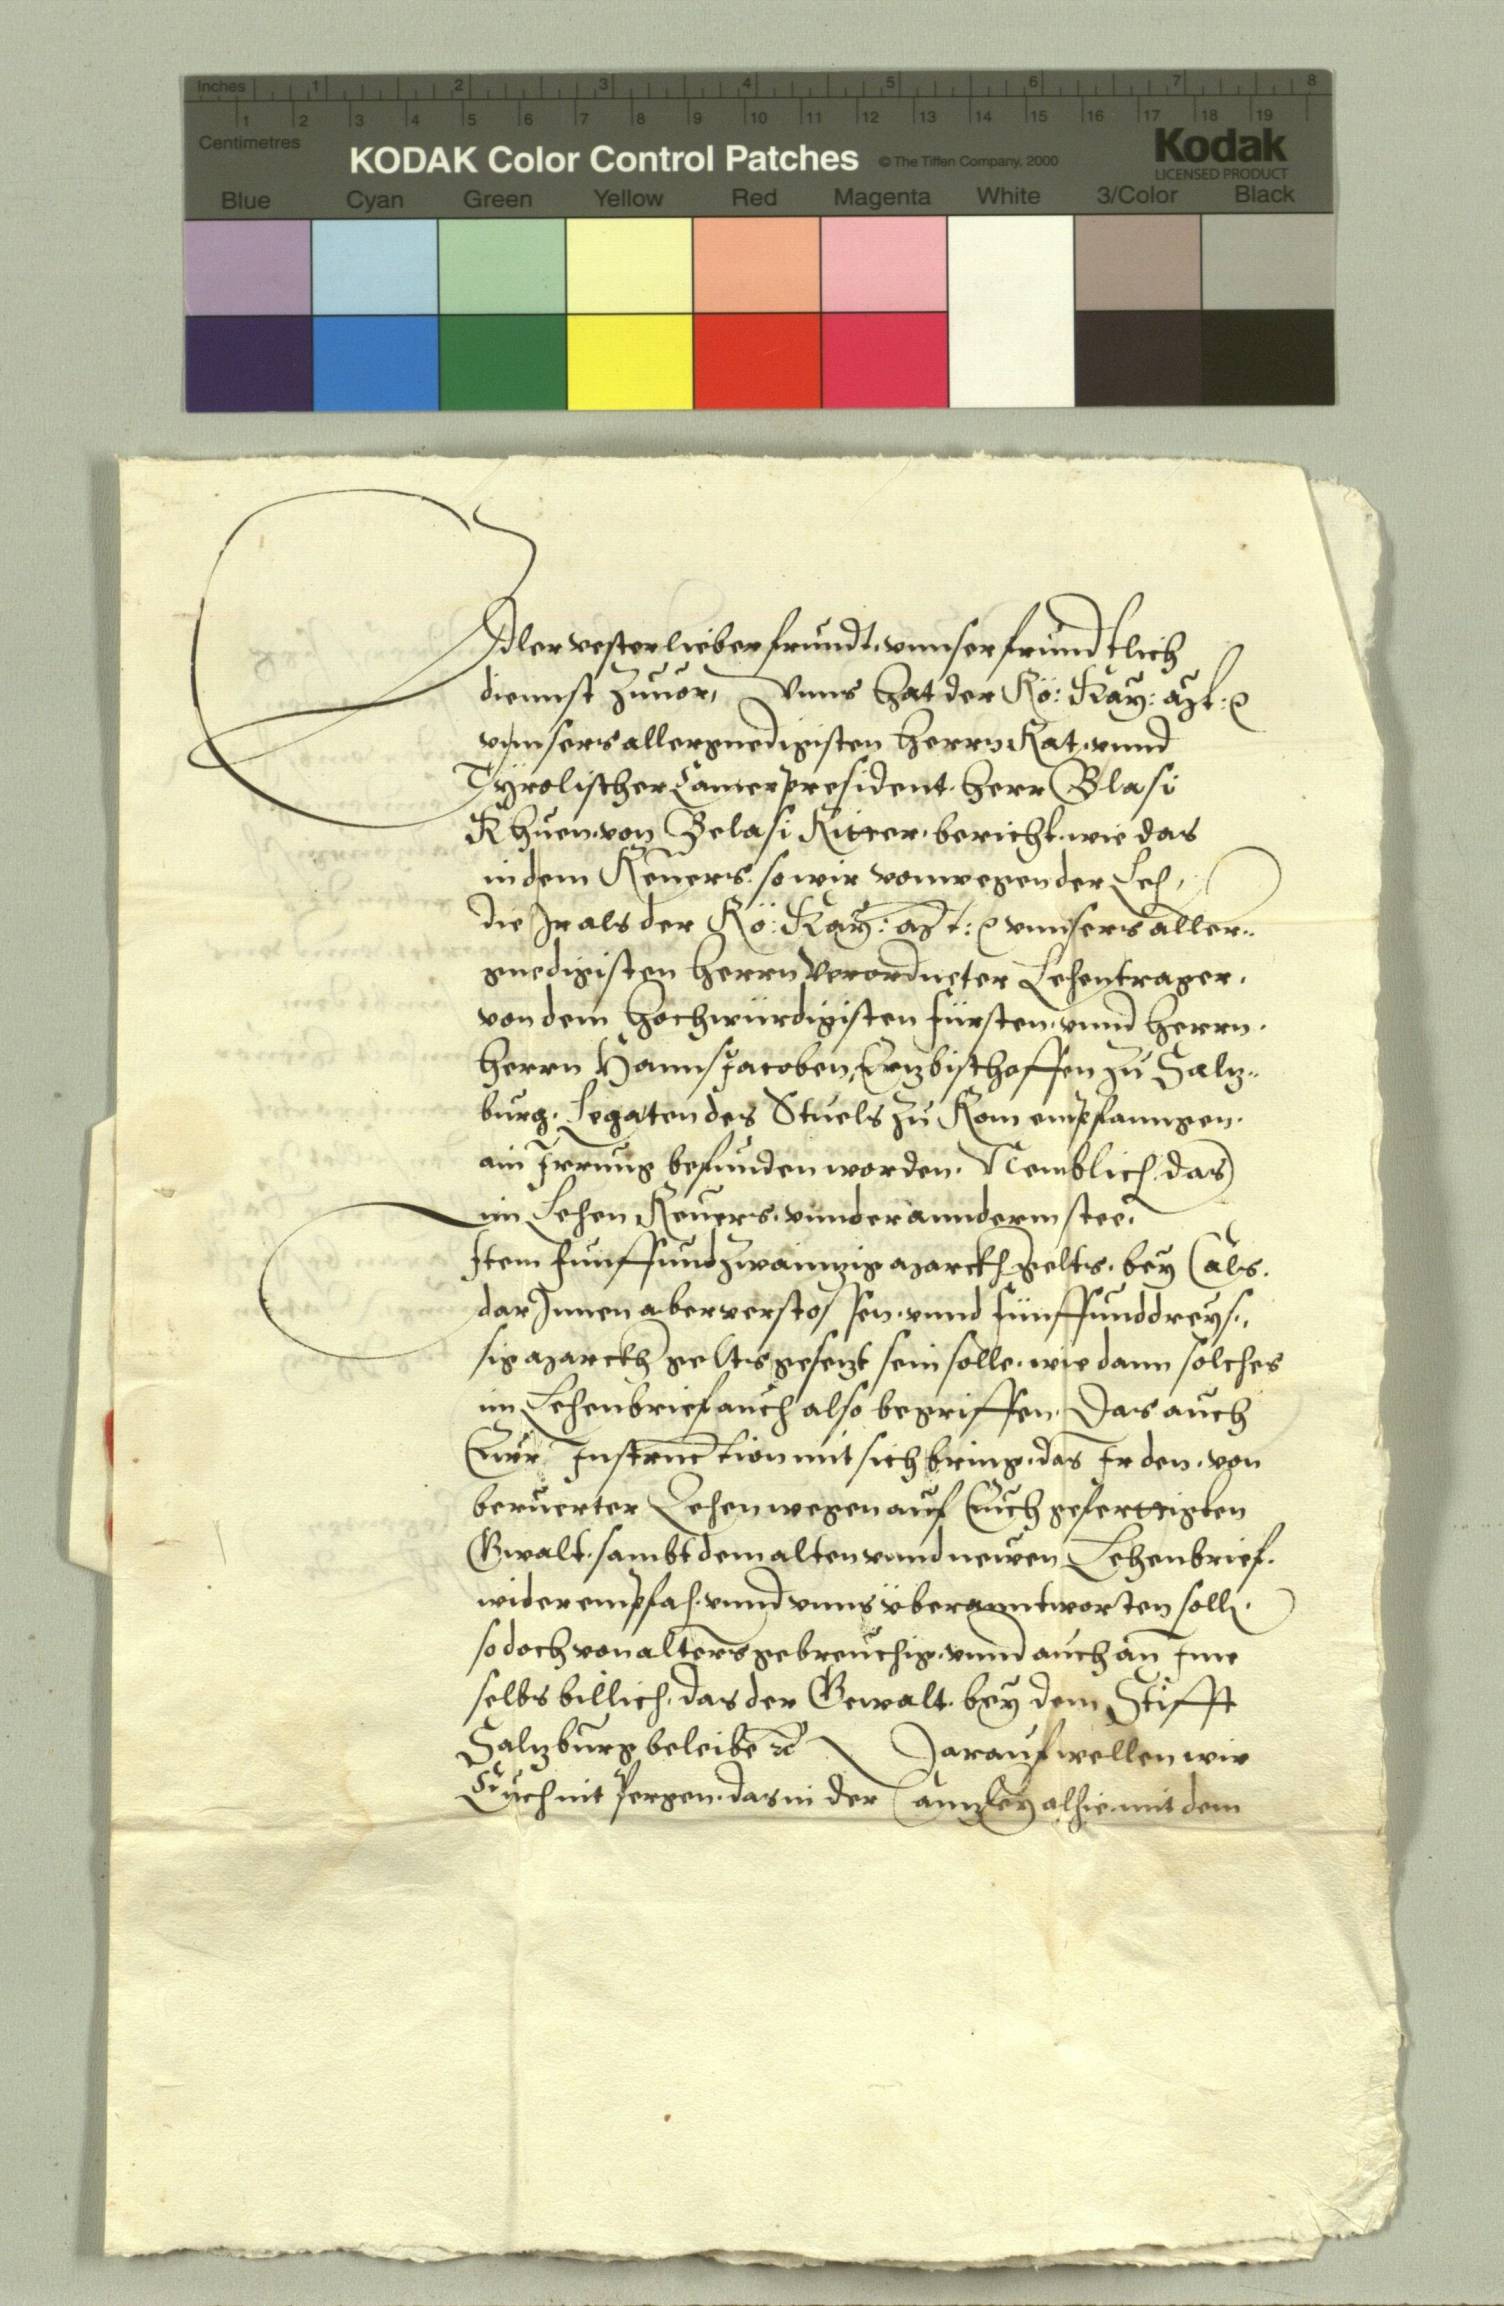 Inches 1 2 3 4 5 6 7 8
1 2 3 4 5 6 7 8 9 10 11 12 13 14 15 16 17 18 19
Centimetres
KODAK Color Control Patches © The Tiffen Company, 2000 Kodak
LICENSED PRODUCT
Blue Cyan Green Yellow Red Magenta White 3/Color Black
Edler vester lieber frundt, unnser frundtlich
diennst zuuor, Unns hat der Rö: Kay: Mt: ꝛc
unnsers allergnedigisten herrn Rat, unnd
Tyrolischer Camerpresident, herr Blasi
Khuen von Belasi Ritter, bericht, wie das
in dem Reuers, so wir von wegen der Leh,
die Ir als der Rö: Kay: Mt: ꝛc unnsers aller-
gnedigisten herrn Verordneter Lehentrager,
von dem hochwürdigisten fürsten, unnd herrn,
herrn Hanns Jacoben, Ertzbischoffen zu Saltz-
burg, Legaten des Stuels zu Rom empfanngen,
ain Irrung befunden worden, Nemblich, das
im Lehen Reuers, unnder annderm stee,
Item funffundzwainzig Marckh gelts, bey Cals,
darInnen aber verstossen, unnd fünffunddreys-
sig Marckh gelts gesetzt sein solle, wie dann solches
im Lehenbrief auch also begriffen, Das auch
Eur Instruction mit sich bring, das Ir den, von
beruerter Lehen wegen auf Euch gefertigten
Gwalt, sambt dem alten unnd newen Lehenbrief,
wider empfah, unnd unns überanntworten soll,
so doch von alters gebreuchig, unnd auch an Ime
selbs billich, das der Gewalt, bey dem Stifft
Saltzburg beleibe ꝛc Darauf wellen wir
Euch nit Pergen, das in der Canntzley alhie, mit dem